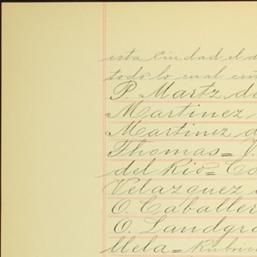 esta ciudad el d
todo lo cual
P. Martz de
Martinez
Martinez d
Thomas= J.
del Rio= Co
Velazquez
O. Caballer
O. Landgra
lleta= Rubric